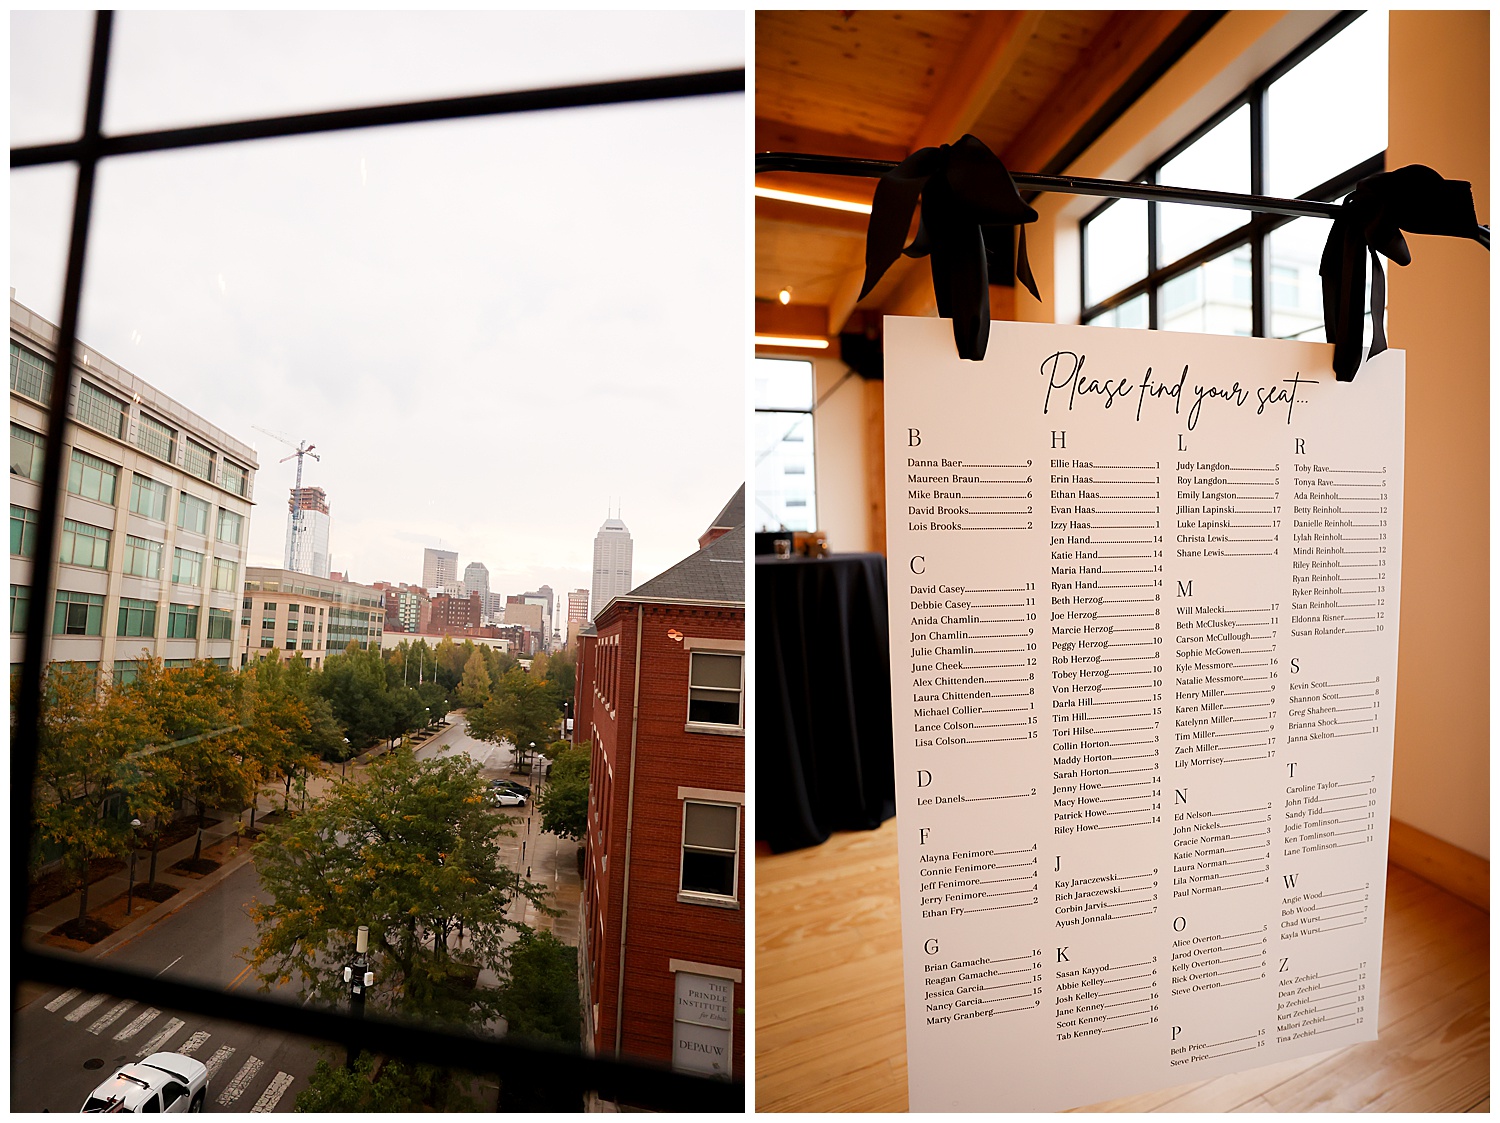 THE
PRINDLE
INSTITUTE
for Ethics
DEPAUW
Please find your seat...
B
Danna Baer 9
Maureen Braun 6
Mike Braun 6
David Brooks 2
Lois Brooks 2
C
David Casey 11
Debbie Casey 11
Anida Chamlin 10
Jon Chamlin 9
Julie Chamlin 10
June Cheek 12
Alex Chittenden 8
Laura Chittenden 8
Michael Collier 1
Lance Colson 15
Lisa Colson 15
D
Lee Danels 2
F
Alayna Fenimore 4
Connie Fenimore 4
Jeff Fenimore 4
Jerry Fenimore 4
Ethan Fry 2
G
Brian Gamache 16
Reagan Gamache 16
Jessica Garcia 15
Nancy Garcia 15
Marty Granberg 9
H
Ellie Haas 1
Erin Haas 1
Ethan Haas 1
Evan Haas 1
Izzy Haas 1
Jen Hand 14
Katie Hand 14
Maria Hand 14
Ryan Hand 14
Beth Herzog 8
Joe Herzog 8
Marcie Herzog 8
Peggy Herzog 10
Rob Herzog 8
Tobey Herzog 10
Von Herzog 10
Darla Hill 15
Tim Hill 15
Tori Hilse 7
Collin Horton 3
Maddy Horton 3
Sarah Horton 3
Jenny Howe 14
Macy Howe 14
Patrick Howe 14
Riley Howe 14
J
Kay Jaraczewski 9
Rich Jaraczewski 9
Corbin Jarvis 3
Ayush Jonnala 7
K
Sasan Kayyod 3
Abbie Kelley 6
Josh Kelley 6
Jane Kenney 16
Scott Kenney 16
Tab Kenney 16
L
Judy Langdon 5
Roy Langdon 5
Emily Langston 7
Jillian Lapinski 17
Luke Lapinski 17
Christa Lewis 4
Shane Lewis 4
M
Will Malecki 17
Beth McCluskey 11
Carson McCullough 7
Sophie McGowen 7
Kyle Messmore 16
Natalie Messmore 16
Henry Miller 9
Karen Miller 9
Katelynn Miller 17
Tim Miller 9
Zach Miller 17
Lily Morrisey 17
N
Ed Nelson 2
John Nickels 5
Gracie Norman 3
Katie Norman 3
Laura Norman 4
Lila Norman 3
Paul Norman 4
O
Alice Overton 5
Jarod Overton 6
Kelly Overton 6
Rick Overton 6
Steve Overton 6
P
Beth Price 15
Steve Price 15
R
Toby Rave 5
Tonya Rave 5
Ada Reinholt 13
Betty Reinholt 12
Danielle Reinholt 13
Lylah Reinholt 13
Mindi Reinholt 12
Riley Reinholt 13
Ryan Reinholt 12
Ryker Reinholt 13
Stan Reinholt 12
Eldonna Risner 12
Susan Rolander 10
S
Kevin Scott 8
Shannon Scott 8
Greg Shaheen 11
Brianna Shock 1
Janna Skelton 11
T
Caroline Taylor 7
John Tidd 10
Sandy Tidd 10
Jodie Tomlinson 11
Ken Tomlinson 11
Lane Tomlinson 11
W
Angie Wood 2
Bob Wood 2
Chad Wurst 7
Kayla Wurst 7
Z
Alex Zechiel 17
Dean Zechiel 12
Jo Zechiel 13
Kurt Zechiel 13
Mallori Zechiel 13
Tina Zechiel 12